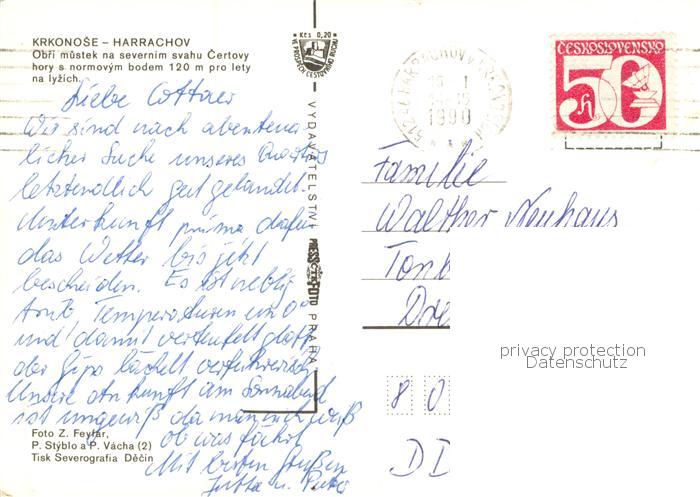 KRKONOŠE – HARRACHOV
Obří můstek na severním svahu Čertovy
hory s normovým bodem 120 m pro lety
na lyžích.
Kčs 0,20
VE PROSPĚCH CESTOVNÍHO RUCHU
VYDAVATELSTVÍ PRESSFOTO PRAHA
Liebe Cottaer
Wir sind nach abenteuer
licher Suche unseres Quartiers
letztendlich gut gelandet.
Unterkunft prima dafür
das Wetter bis jetzt
bescheiden. Es ist neblig
Temperaturen um 0°
und damit verteufelt glatt
der Gips lächelt verführerisch
Unsere Ankunft am Sonnabend
ist ungewiß da man nich weiß
ob was fährt
Mit besten Grüßen
Jutta u.
Foto Z. Feyfar,
P. Stýblo a P. Vácha (2)
Tisk Severografia Děčín
HARRACHOV
1990
ČESKOSLOVENSKO
50 h
Familie
Walther Neuhaus
Ton
Dre
privacy protection
Datenschutz
8 0
DD